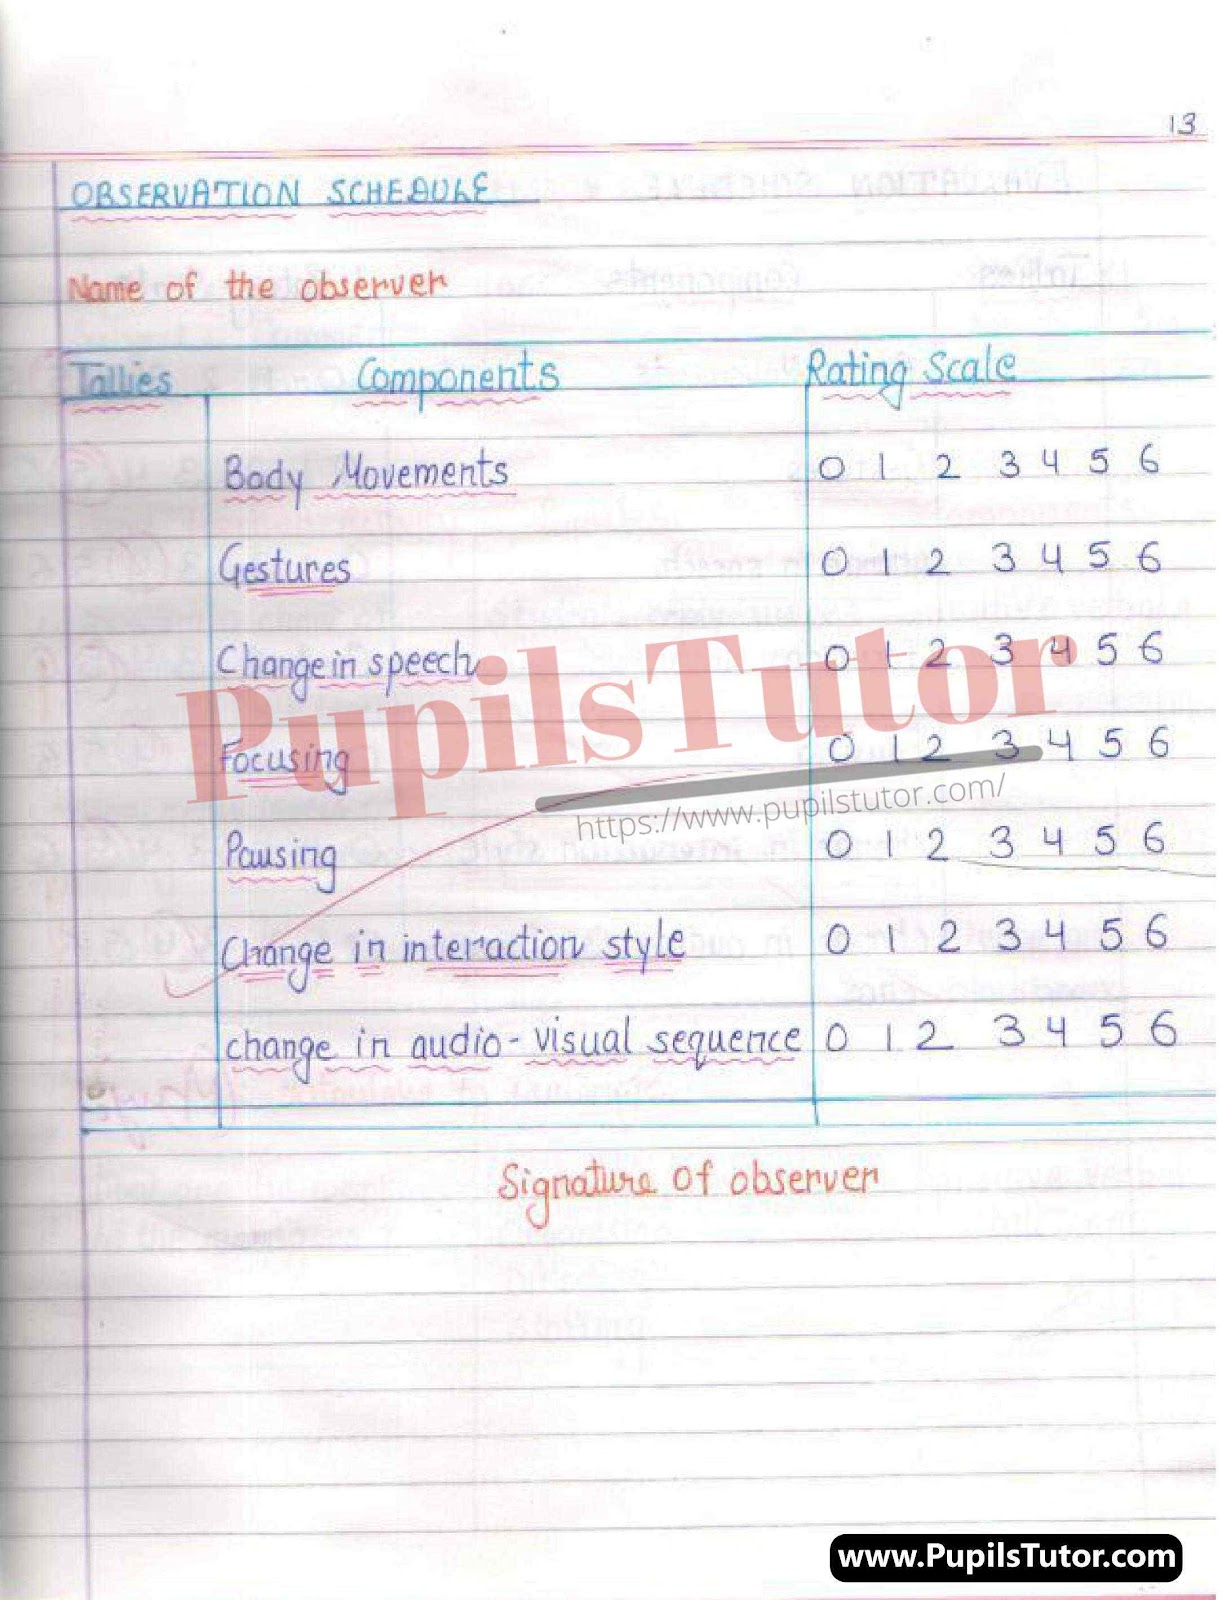 13
OBSERVATION SCHEDULE
Name of the observer
Tallies Components Rating Scale
Body Movements 0 1 2 3 4 5 6
Gestures 0 1 2 3 4 5 6
Change in speech 0 1 2 3 4 5 6
PupilsTutor
Focusing 0 1 2 3 4 5 6
https://www.pupilstutor.com/
Pausing 0 1 2 3 4 5 6
Change in interaction style 0 1 2 3 4 5 6
change in audio-visual sequence 0 1 2 3 4 5 6
Signature of observer
www.PupilsTutor.com